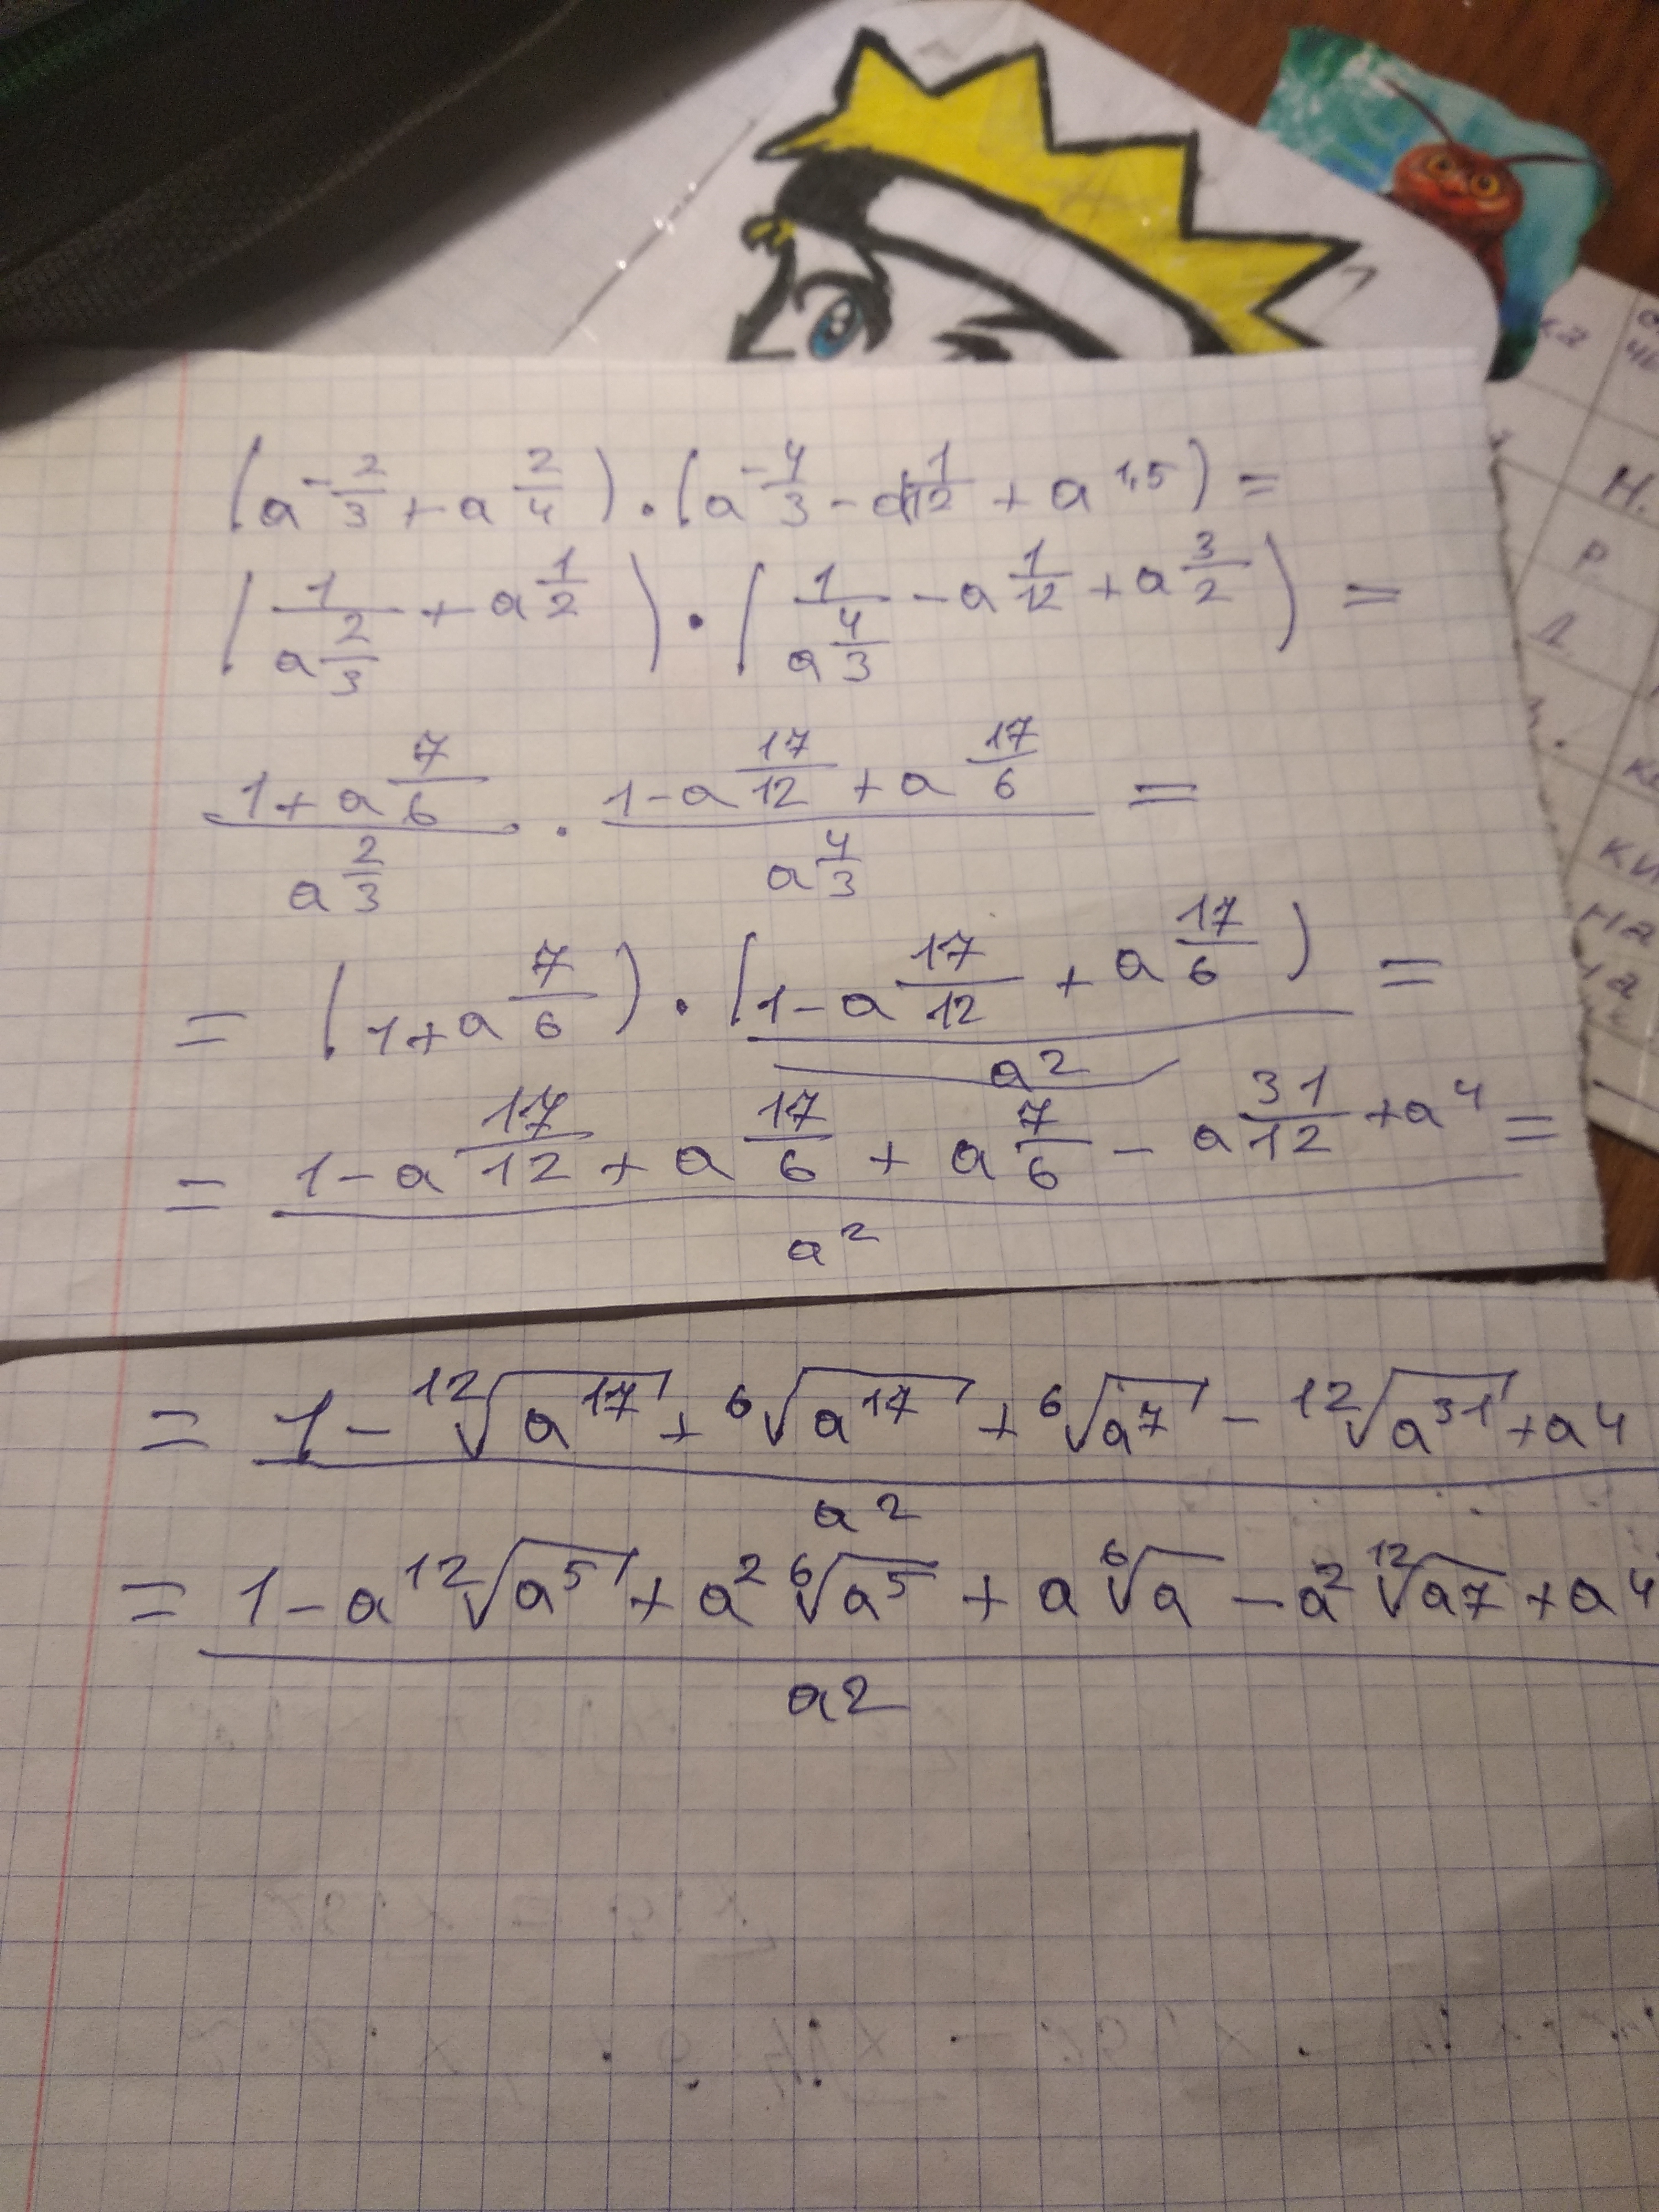 (a^{-\frac{2}{3}} + a^{\frac{2}{4}}) \cdot (a^{-\frac{4}{3}} - a^{\frac{1}{12}} + a^{1,5}) =
(\frac{1}{a^{\frac{2}{3}}} + a^{\frac{1}{2}}) \cdot (\frac{1}{a^{\frac{4}{3}}} - a^{\frac{1}{12}} + a^{\frac{3}{2}}) =
\frac{1 + a^{\frac{7}{6}}}{a^{\frac{2}{3}}} \cdot \frac{1 - a^{\frac{17}{12}} + a^{\frac{17}{6}}}{a^{\frac{4}{3}}} =
= (1 + a^{\frac{7}{6}}) \cdot \frac{(1 - a^{\frac{17}{12}} + a^{\frac{17}{6}})}{a^2} =
= \frac{1 - a^{\frac{17}{12}} + a^{\frac{17}{6}} + a^{\frac{7}{6}} - a^{\frac{31}{12}} + a^4}{a^2} =
= \frac{1 - \sqrt[12]{a^{17}} + \sqrt[6]{a^{17}} + \sqrt[6]{a^7} - \sqrt[12]{a^{31}} + a^4}{a^2}
= \frac{1 - a\sqrt[12]{a^5} + a^2\sqrt[6]{a^5} + a\sqrt[6]{a} - a^2\sqrt[12]{a^7} + a^4}{a^2}